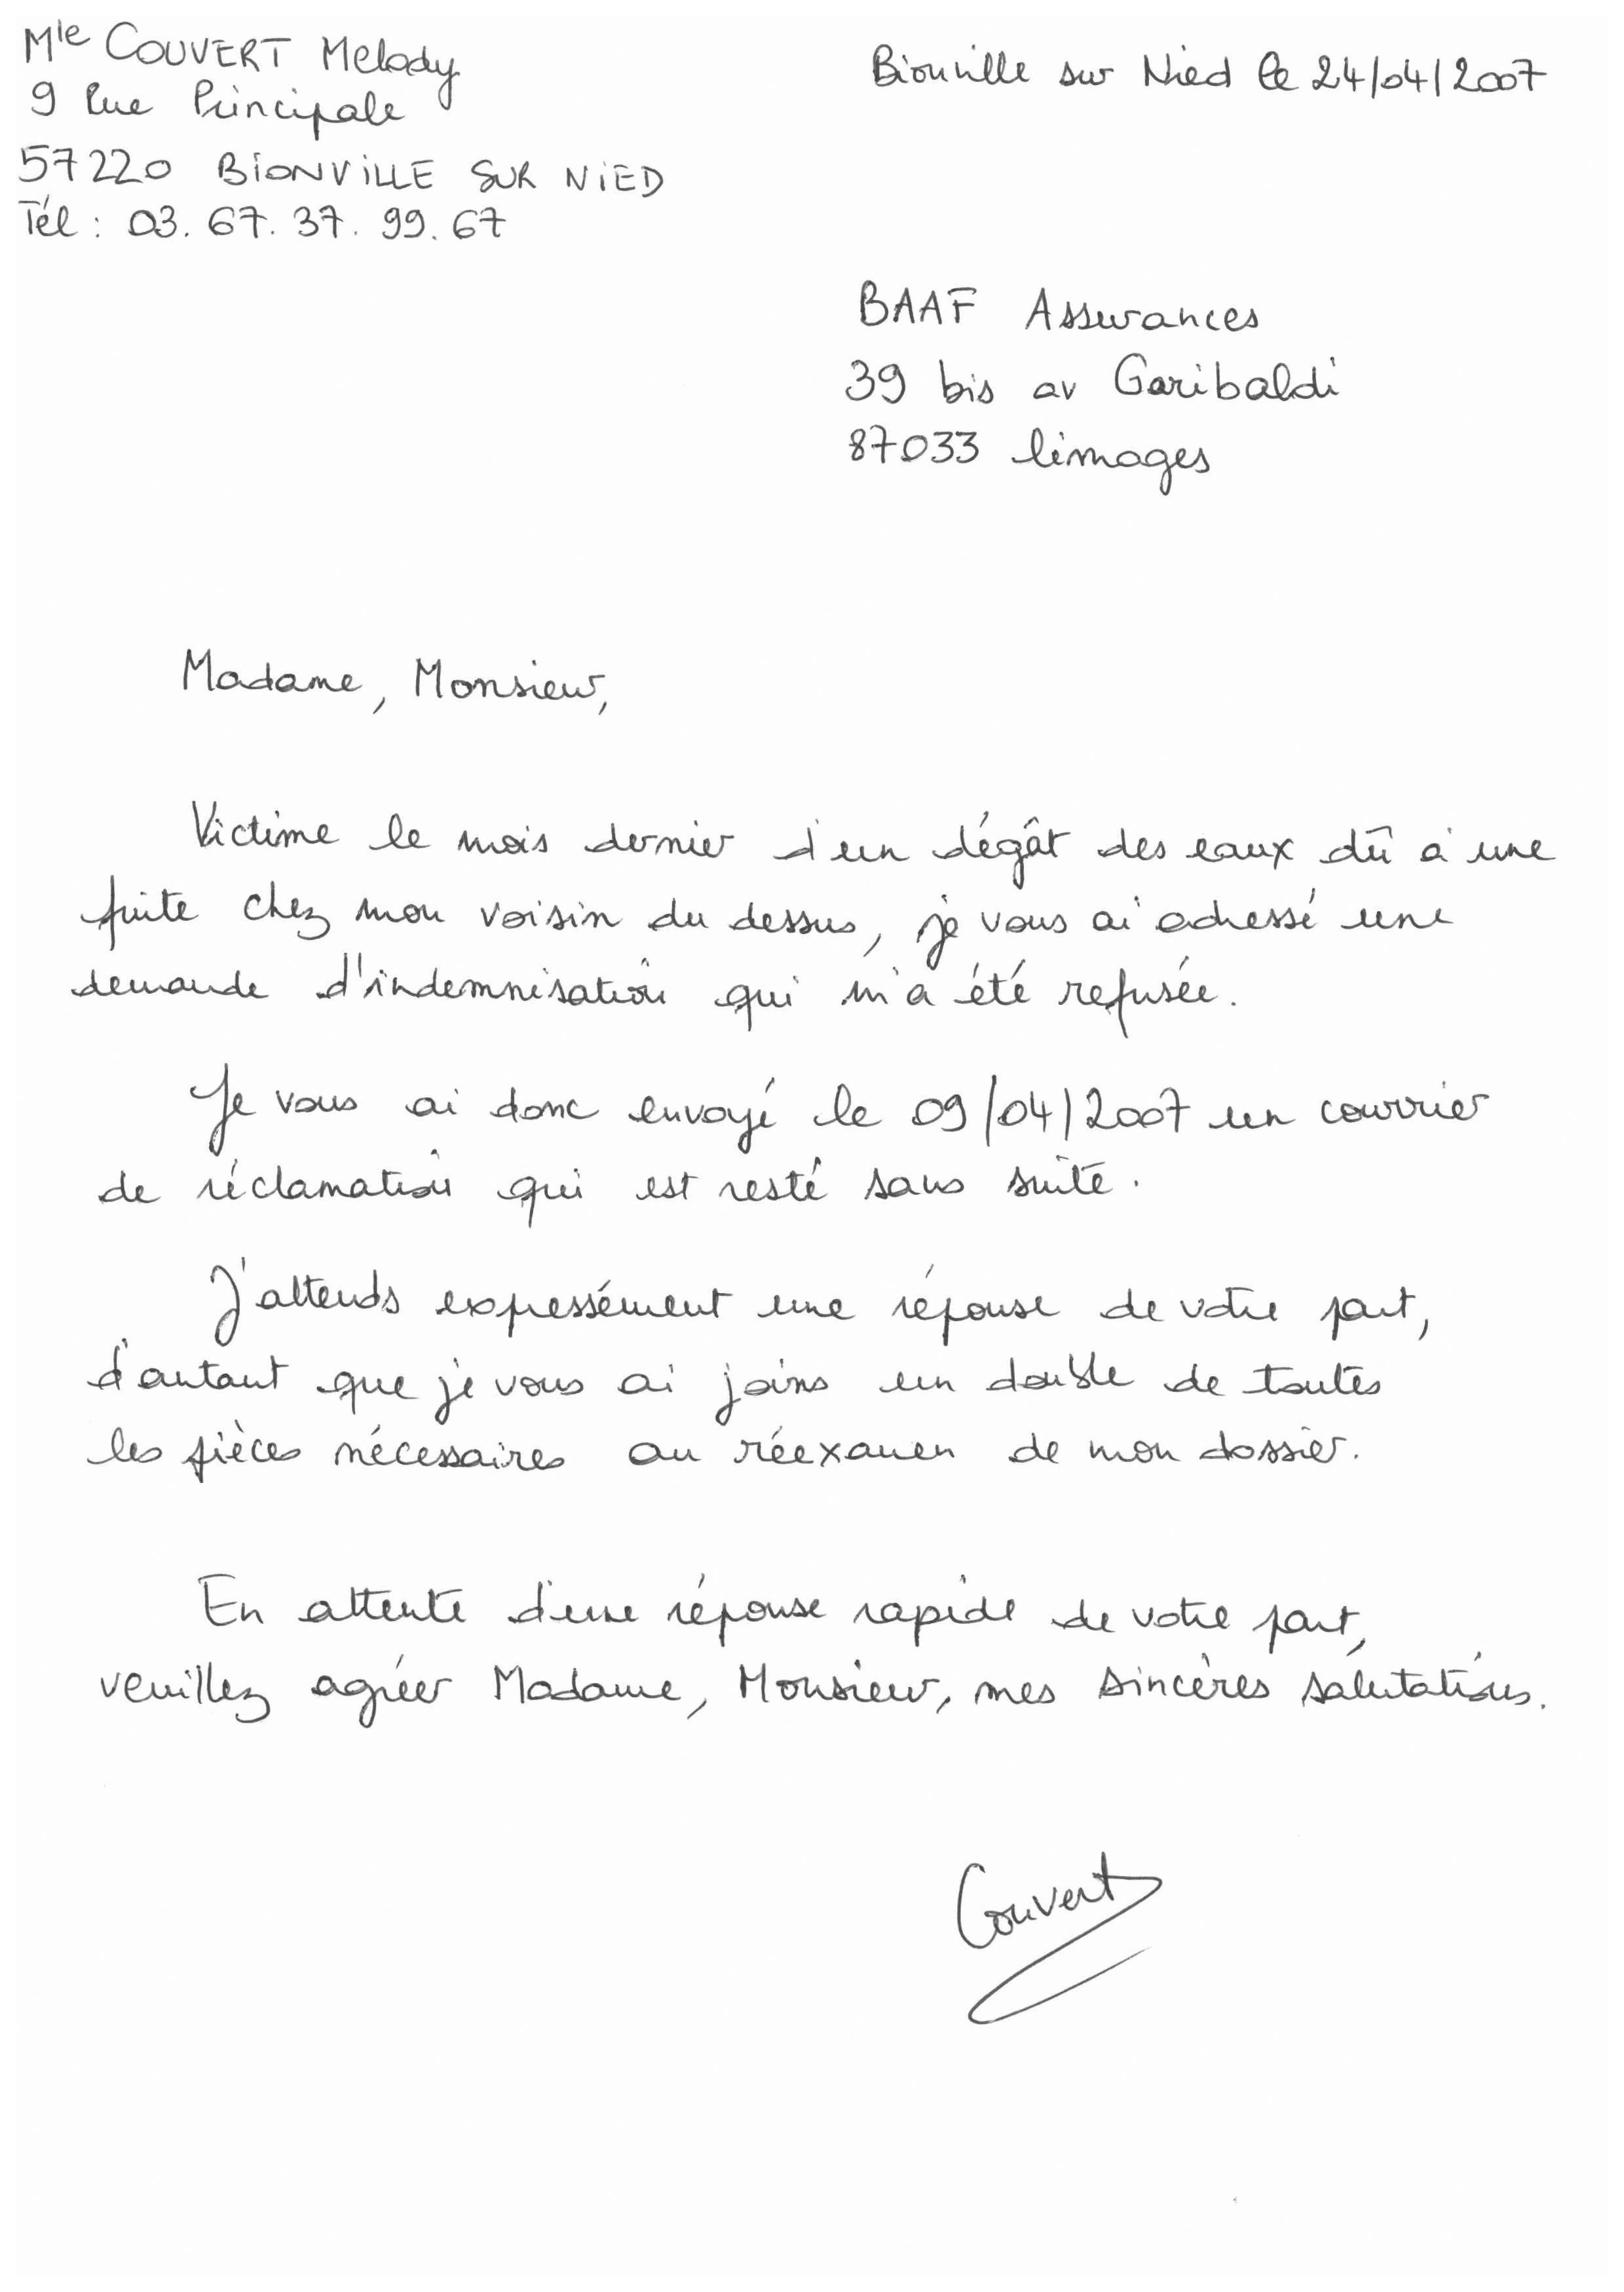 Mle COUVERT Melody
9 Rue Principale
57220 BIONVILLE SUR NIED
Tél : 03. 67. 37. 99. 67
Bionville sur Nied le 24/04/2007
BAAF Assurances
39 bis av Garibaldi
87033 limoges
Madame, Monsieur,
Victime le mois dernier d'un dégât des eaux dû à une
fuite chez mon voisin du dessus, je vous ai adressé une
demande d'indemnisation qui m'a été refusée.
Je vous ai donc envoyé le 09/04/2007 un courrier
de réclamation qui est resté sans suite.
J'attends expressément une réponse de votre part,
d'autant que je vous ai joins un double de toutes
les pièces nécessaires au réexamen de mon dossier.
En attente d'une réponse rapide de votre part,
veuillez agréer Madame, Monsieur, mes sincères salutations.
Couvert